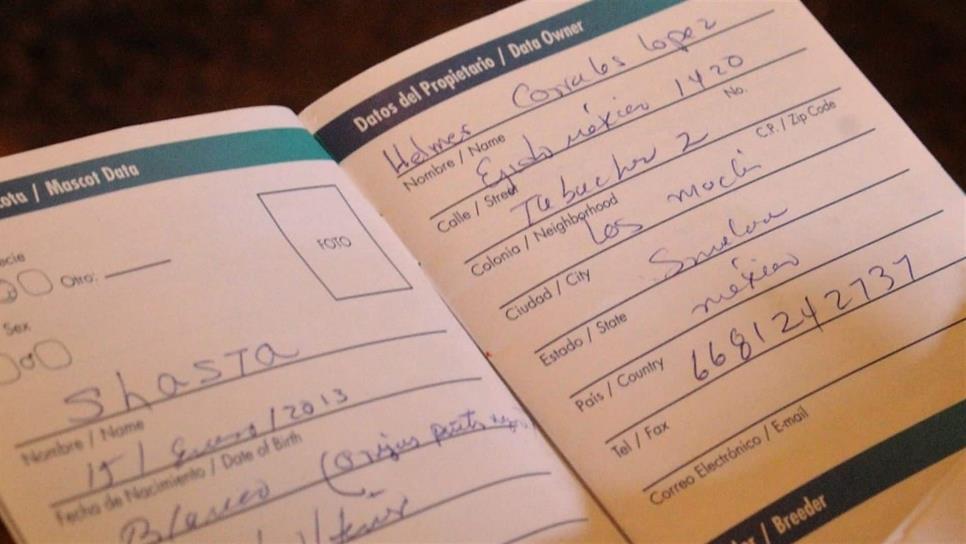 ota / Mascot Data
ecie
Otro:
FOTO
Sex
Shasta
Nombre / Name
15 / Enero / 2013
Fecha de Nacimiento / Date of Birth
Blanco (orejas
Datos del Propietario / Data Owner
Helmes Corrales Lopez
Nombre / Name
Ejido méxico 1420
Calle / Street No.
2
Colonia / Neighborhood C.P. / Zip Code
Los mochis
Ciudad / City
Sinaloa
Estado / State
méxico
País / Country
6681242737
Tel / Fax
Correo Electrónico / E-mail
or / Breeder